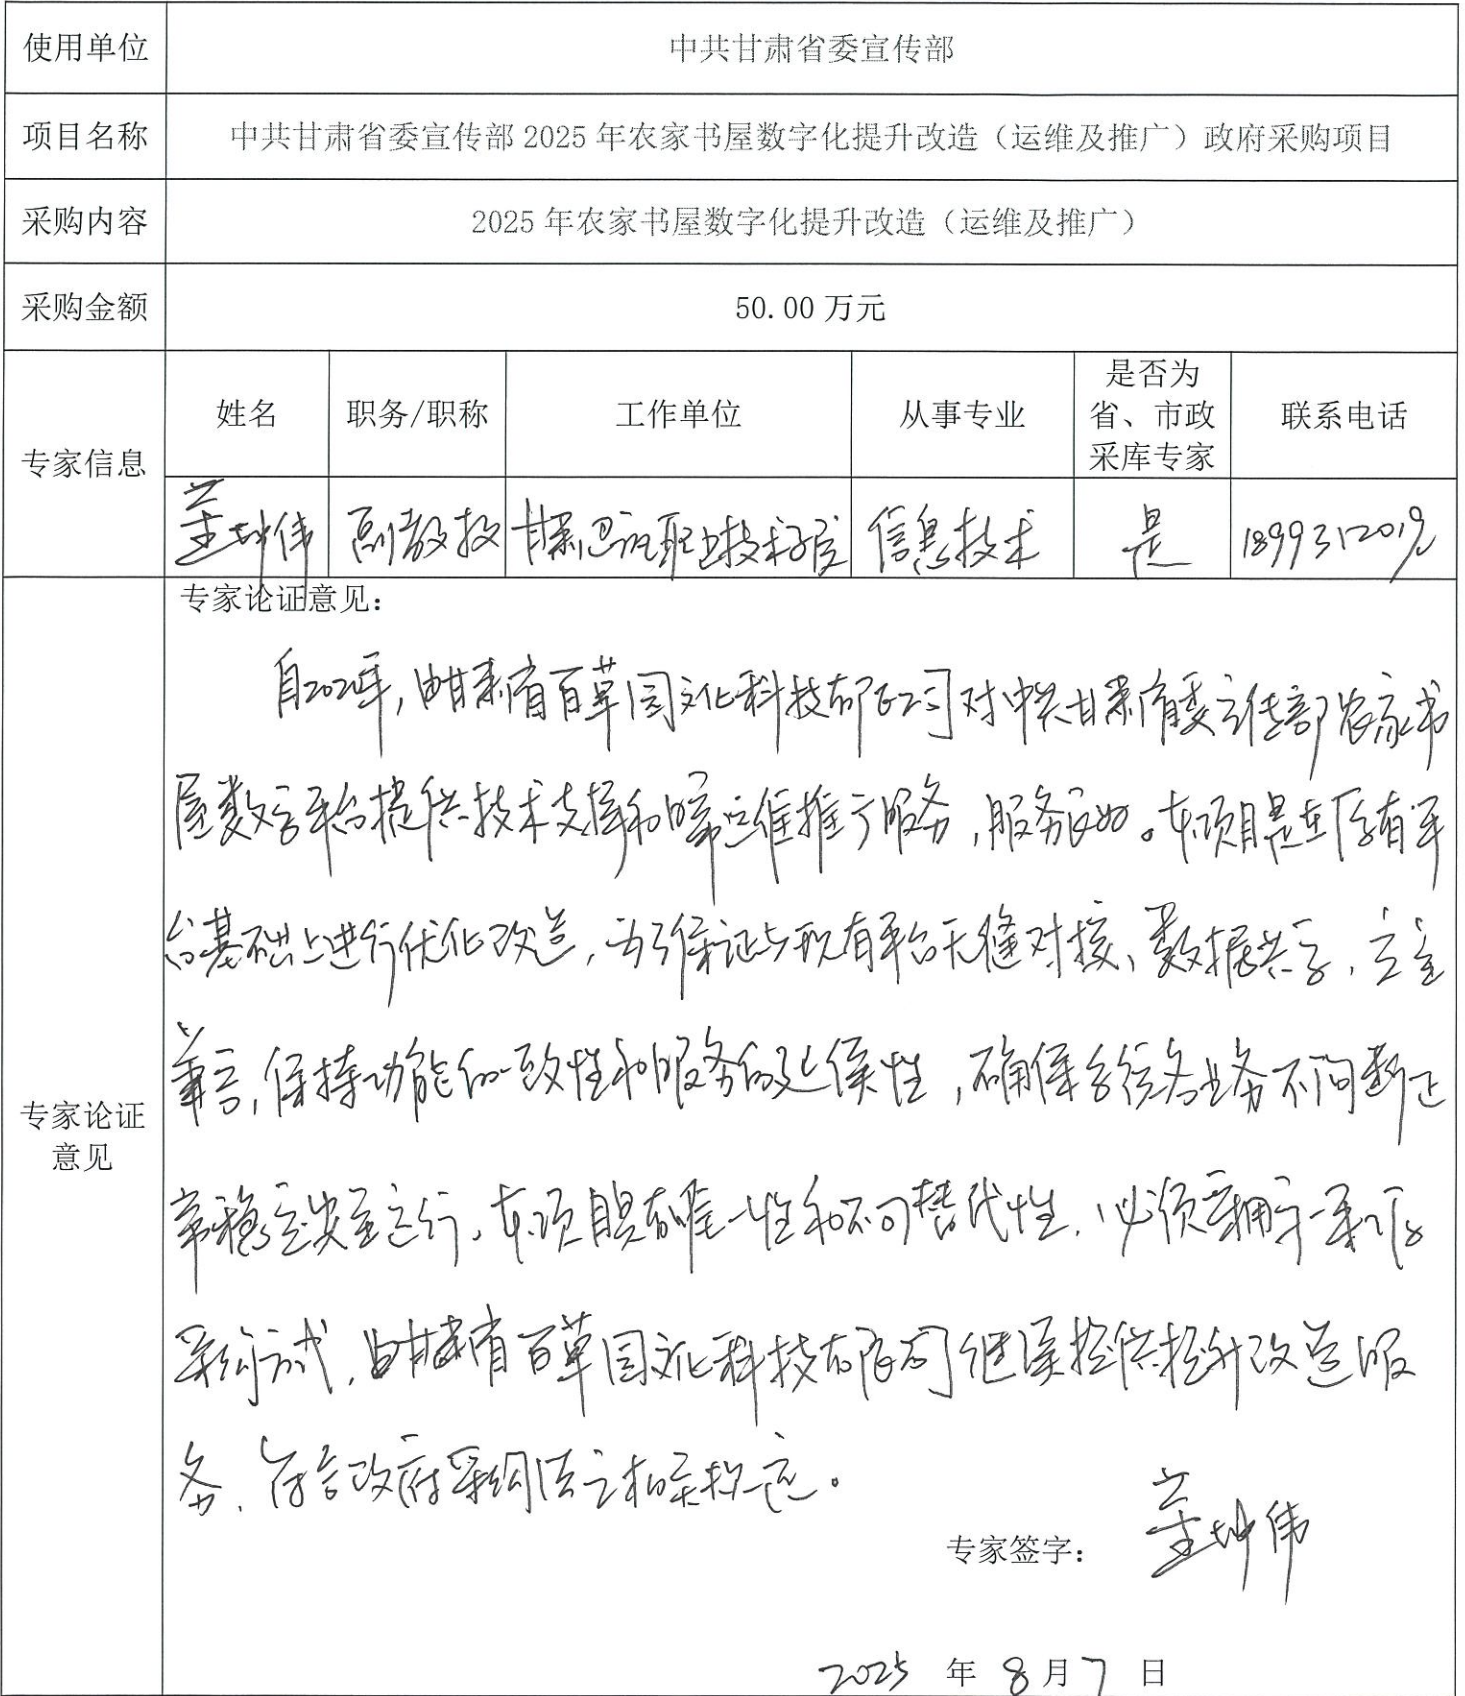 使用单位 中共甘肃省委宣传部
项目名称 中共甘肃省委宣传部 2025 年农家书屋数字化提升改造（运维及推广）政府采购项目
采购内容 2025 年农家书屋数字化提升改造（运维及推广）
采购金额 50.00 万元
专家信息
姓名 职务/职称 工作单位 从事专业 是否为省、市政采库专家 联系电话
董坤伟 副教授 甘肃 职业技术学院 信息技术 是 1899312019
专家论证意见
专家论证意见：
自2021年，由甘肃省百草园文化科技有限公司对中共甘肃省委宣传部农家书
屋数字平台提供技术支撑和日常运维推广服务，服务良好。本项目是在原有平
台基础上进行优化改造，为了保证与现有平台无缝对接、数据共享、安全
兼容，保持功能的一致性和服务的延续性，确保系统各业务不间断正
常稳定安全运行，本项目具有唯一性和不可替代性，必须采用单一来源
采购方式，由甘肃省百草园文化科技有限公司继续提供提升改造服
务，符合政府采购法之相关规定。
专家签字： 董坤伟
2025 年 8 月 7 日